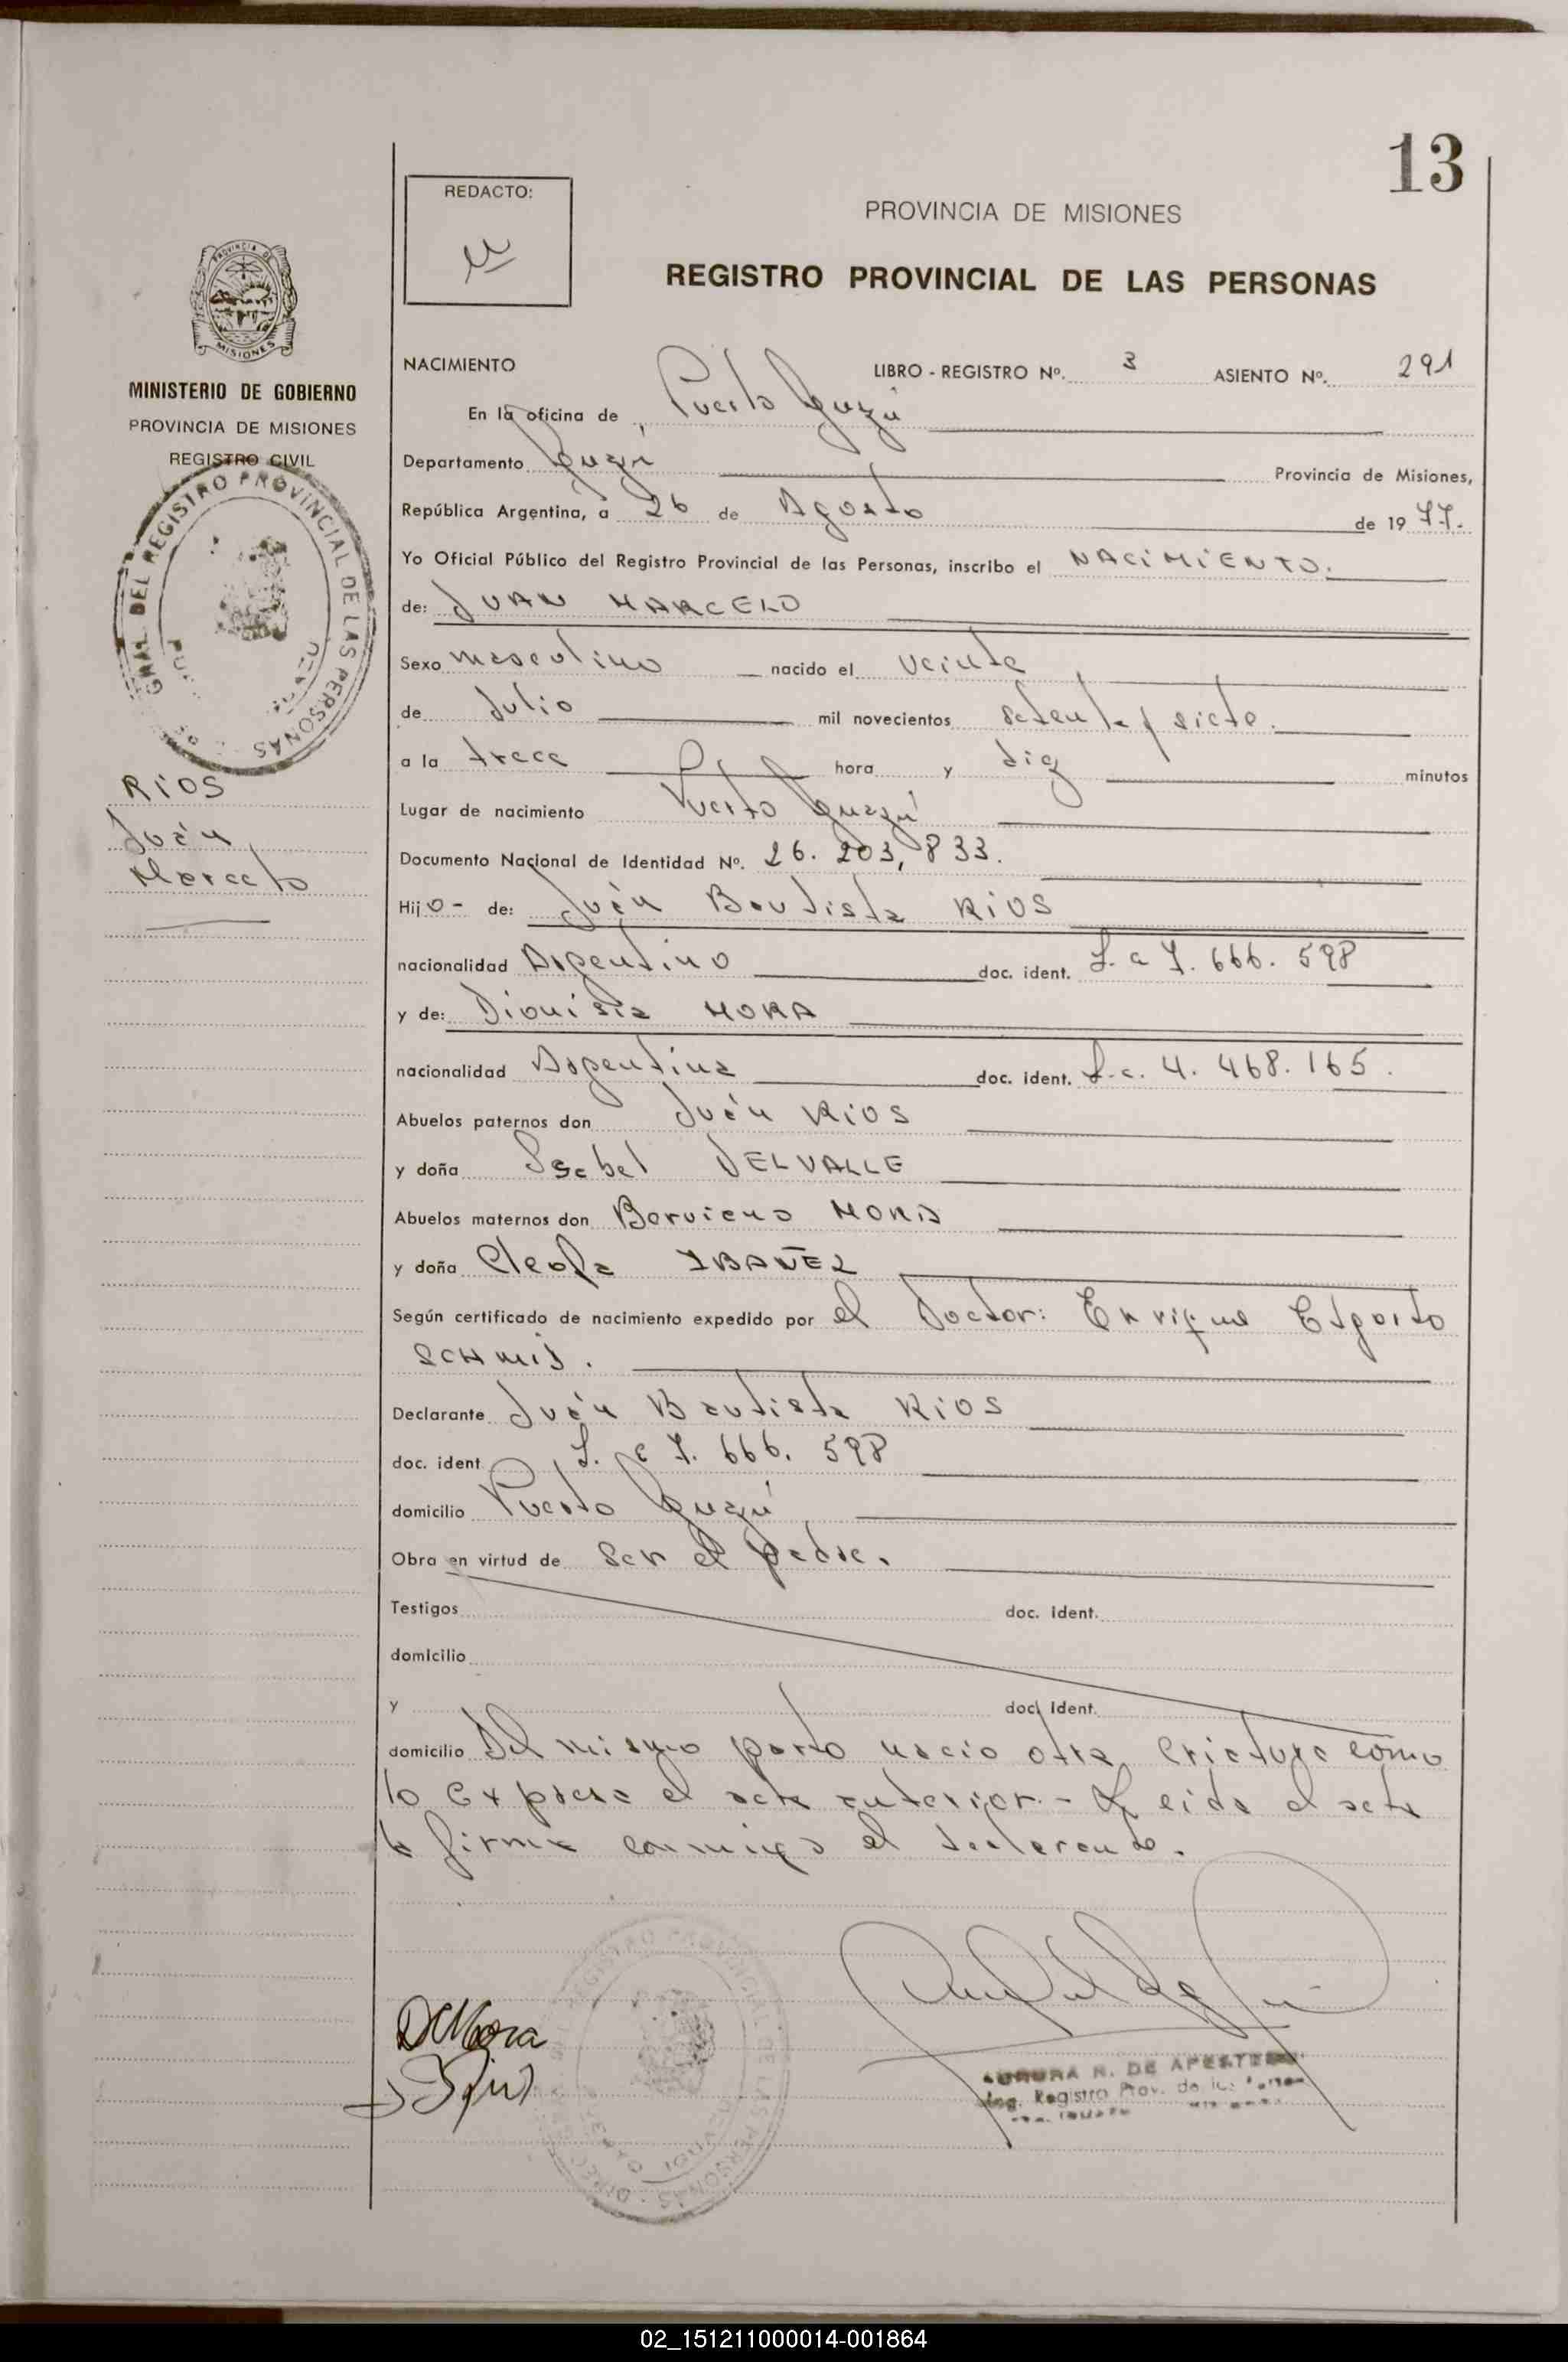 13
REDACTO:
PROVINCIA DE MISIONES
REGISTRO PROVINCIAL DE LAS PERSONAS
PROVINCIA DE
MISIONES
MINISTERIO DE GOBIERNO
PROVINCIA DE MISIONES
REGISTRO CIVIL
GRAL. DEL REGISTRO PROVINCIAL DE LAS PERSONAS
RiOS
Juán
Marcelo
NACIMIENTO LIBRO - REGISTRO Nº. 3 ASIENTO Nº. 291
En la oficina de Puerto Iguazú
Departamento Iguazú Provincia de Misiones,
República Argentina, a 26 de Agosto de 1977.
Yo Oficial Público del Registro Provincial de las Personas, inscribo el NACiMiENTO.
de: JUAN MARCELO
Sexo masculino nacido el veinte
de Julio mil novecientos setenta y siete.
a la trece hora y diez minutos
Lugar de nacimiento Puerto Iguazú
Documento Nacional de Identidad Nº. 26.203,833.
Hijo- de: Juán Bautista RiOS
nacionalidad Argentino doc. ident. L. e 7.666.598
y de: Dionisia MORA
nacionalidad Argentina doc. ident. L.c. 4.468.165.
Abuelos paternos don Juán RiOS
y doña Isabel DELVALLE
Abuelos maternos don MORA
y doña Cleofa IBAÑEZ
Según certificado de nacimiento expedido por el Doctor: Enrique Edgardo
SCHmid.
Declarante Juán Bautista RiOS
doc. ident L. e 7.666.598
domicilio Puerto Iguazú
Obra en virtud de ser el padre.
Testigos doc. Ident.
domicilio
y doc. Ident.
domicilio Del mismo parto nacio otra criatura como
lo expresa el acta anterior.- Leida el acta
la firma conmigo el declarante.
DeMora
REGISTRO PROVINCIAL DE LAS PERSONAS
AURORA R. DE
Registro Prov. de las
02_151211000014-001864